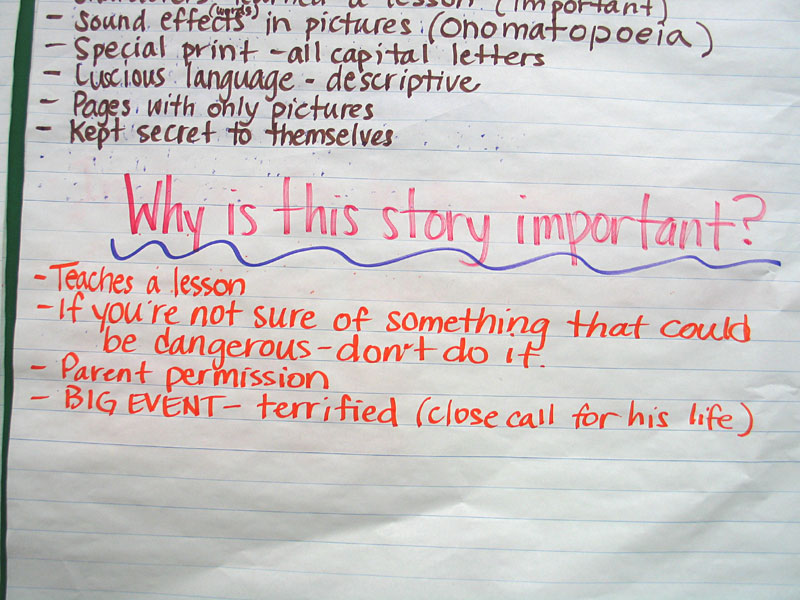 learned a lesson (important)
- Sound effects (words) in pictures (onomatopoeia)
- Special print - all capital letters
- Luscious language - descriptive
- Pages with only pictures
- Kept secret to themselves
Why is this story important?
- Teaches a lesson
- If you're not sure of something that could
be dangerous - don't do it.
- Parent permission
- BIG EVENT - terrified (close call for his life)